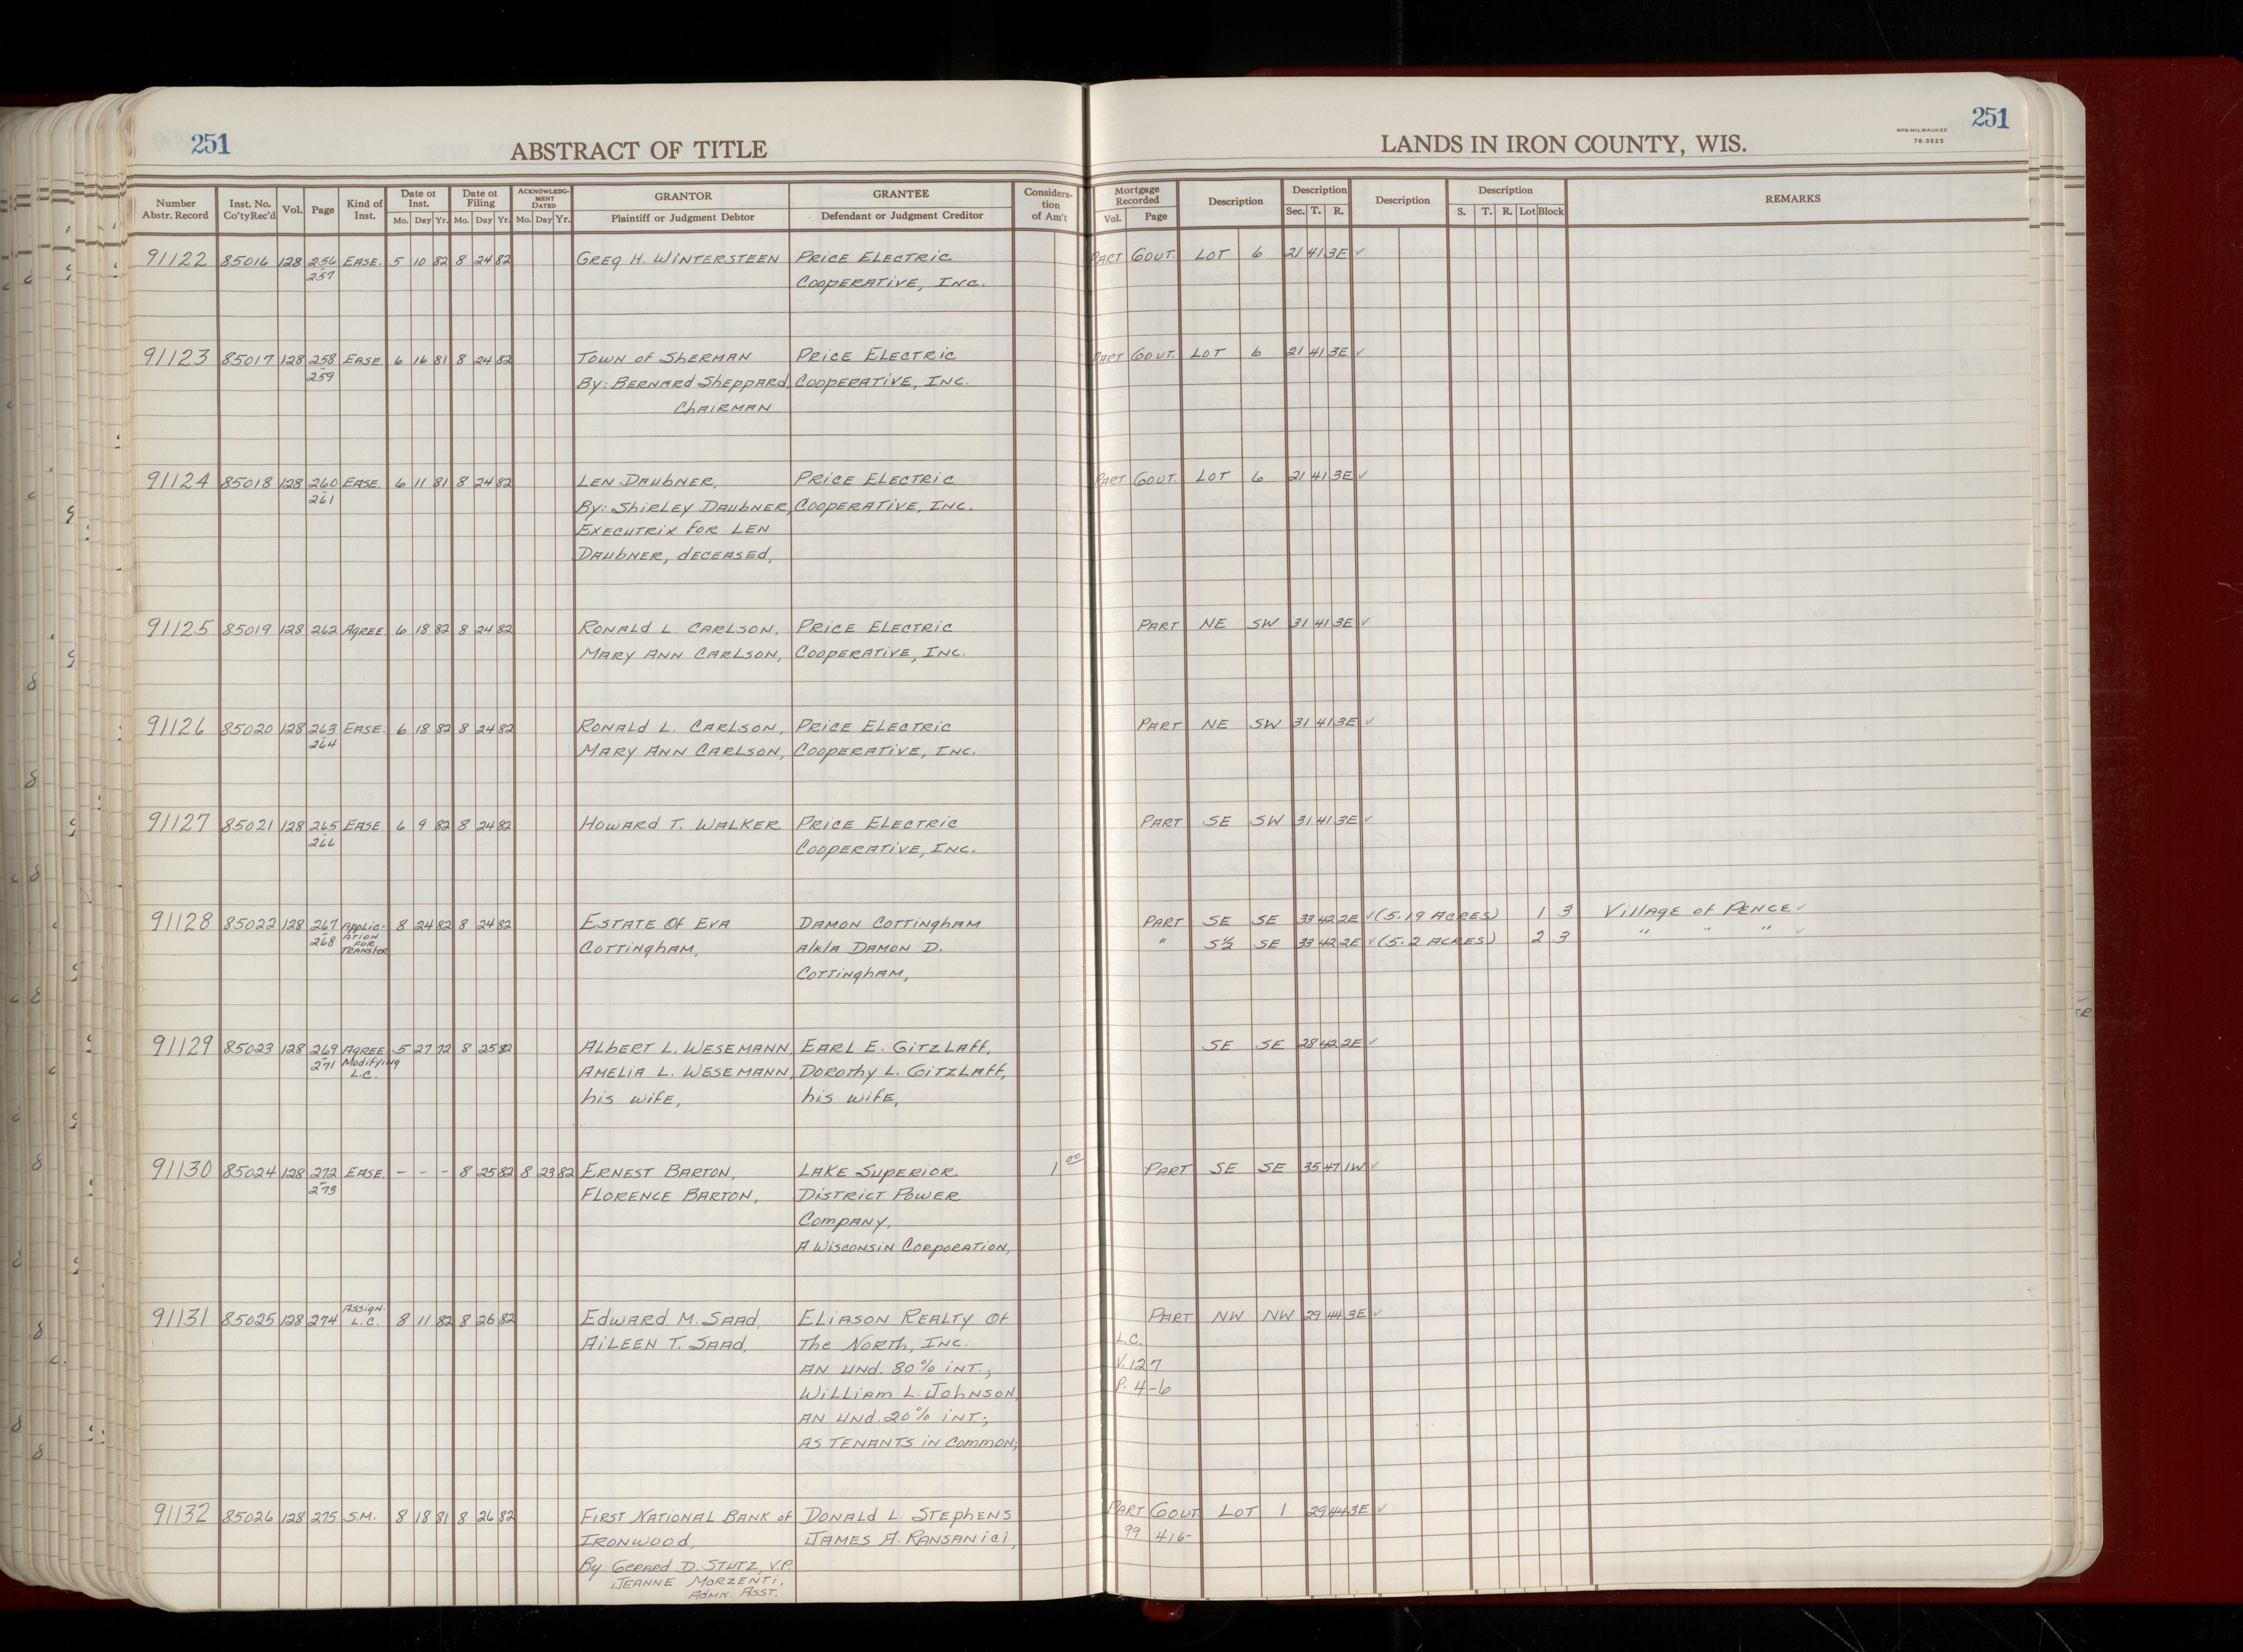 251
ABSTRACT OF TITLE
LANDS IN IRON COUNTY, WIS.
WPB-MILWAUKEE
78-3525
251
Number Abstr. Record Inst. No. Co'ty Rec'd Vol. Page Kind of Inst. Date of Inst. Mo. Day Yr. Date of Filing Mo. Day Yr. ACKNOWLEDGMENT DATED Mo. Day Yr. GRANTOR Plaintiff or Judgment Debtor GRANTEE Defendant or Judgment Creditor Consideration of Am't Mortgage Recorded Vol. Page Description Description Sec. T. R. Description Description S. T. R. Lot Block REMARKS
91122 85016 128 256 EASE. 5 10 82 8 24 82 GREG H. WINTERSTEEN PRICE ELECTRIC PART GOVT. LOT 6 21 41 3E ✓
257 COOPERATIVE, INC.
91123 85017 128 258 EASE. 6 16 81 8 24 82 TOWN OF SHERMAN PRICE ELECTRIC PART GOVT. LOT 6 21 41 3E ✓
259 By: BERNARD SHEPPARD, COOPERATIVE, INC.
CHAIRMAN
91124 85018 128 260 EASE. 6 11 81 8 24 82 LEN DAUBNER, PRICE ELECTRIC PART GOVT. LOT 6 21 41 3E ✓
261 By: SHIRLEY DAUBNER, COOPERATIVE, INC.
EXECUTRIX FOR LEN
DAUBNER, DECEASED,
91125 85019 128 262 AGREE 6 18 82 8 24 82 RONALD L. CARLSON, PRICE ELECTRIC PART NE SW 31 41 3E ✓
MARY ANN CARLSON, COOPERATIVE, INC.
91126 85020 128 263 EASE. 6 18 82 8 24 82 RONALD L. CARLSON, PRICE ELECTRIC PART NE SW 31 41 3E ✓
264 MARY ANN CARLSON, COOPERATIVE, INC.
91127 85021 128 265 EASE 6 9 82 8 24 82 HOWARD T. WALKER PRICE ELECTRIC PART SE SW 31 41 3E ✓
266 COOPERATIVE, INC.
91128 85022 128 267 APPLIC- 8 24 82 8 24 82 ESTATE OF EVA DAMON COTTINGHAM PART SE SE 33 42 2E ✓ (5.19 ACRES) 1 3 VILLAGE OF PENCE ✓
268 ATION FOR TRANSFER COTTINGHAM, A/K/A DAMON D. " S½ SE 33 42 2E ✓ (5.2 ACRES) 2 3 " " " ✓
COTTINGHAM,
91129 85023 128 269 AGREE 5 27 72 8 25 82 ALBERT L. WESEMANN, EARL E. GITZLAFF, SE SE 28 42 2E ✓
271 MODIFYING L.C. AMELIA L. WESEMANN, DOROTHY L. GITZLAFF,
HIS WIFE, HIS WIFE,
91130 85024 128 272 EASE. - - - 8 25 82 8 23 82 ERNEST BARTON, LAKE SUPERIOR 1 00 PART SE SE 35 47 1W ✓
273 FLORENCE BARTON, DISTRICT POWER
COMPANY,
A WISCONSIN CORPORATION,
91131 85025 128 274 ASSIGN. L.C. 8 11 82 8 26 82 EDWARD M. SAAD, ELIASON REALTY OF PART NW NW 29 44 3E ✓
AILEEN T. SAAD, THE NORTH, INC. L.C.
AN UND. 80% INT.; V. 127
WILLIAM L. JOHNSON, P. 4-6
AN UND. 20% INT.;
AS TENANTS IN COMMON;
91132 85026 128 275 S.M. 8 18 81 8 26 82 FIRST NATIONAL BANK OF DONALD L. STEPHENS PART GOVT LOT 1 29 44 3E ✓
IRONWOOD, JAMES A. RANSANICI, 99 416-
By: GERARD D. STUTZ, V.P.
JEANNE MORZENTI,
ADMN. ASST.